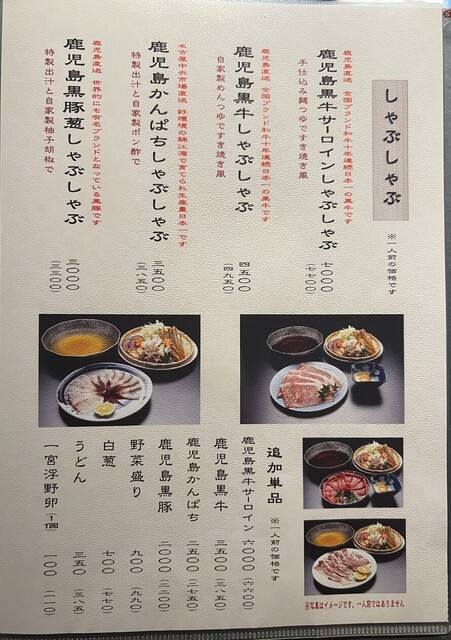 しゃぶしゃぶ
※一人前の価格です
鹿児島直送 全国ブランド和牛十年連続日本一の黒牛です
鹿児島黒牛サーロインしゃぶしゃぶ 七〇〇〇
(七七〇〇)
手仕込み麺つゆですき焼き風
鹿児島直送 全国ブランド和牛十年連続日本一の黒牛です
鹿児島黒牛しゃぶしゃぶ 四五〇〇
(四九五〇)
自家製めんつゆですき焼き風
名古屋中央市場直送 好環境の錦江湾で育てられ生産量日本一です
鹿児島かんぱちしゃぶしゃぶ 三五〇〇
(三八五〇)
特製出汁と自家製ポン酢で
鹿児島直送 世界的にも有名ブランドとなっている黒豚です
鹿児島黒豚葱しゃぶしゃぶ 三〇〇〇
(三三〇〇)
特製出汁と自家製柚子胡椒で
追加単品 ※一人前の価格です
鹿児島黒牛サーロイン 六〇〇〇 (六六〇〇)
鹿児島黒牛 三五〇〇 (三八五〇)
鹿児島かんぱち 二五〇〇 (二七五〇)
鹿児島黒豚 二〇〇〇 (二二〇〇)
野菜盛り 九〇〇 (九九〇)
白葱 七〇〇 (七七〇)
うどん 三五〇 (三八五)
一宮浮野卵(1個) 一〇〇 (一一〇)
※写真はイメージです、一人前ではありません